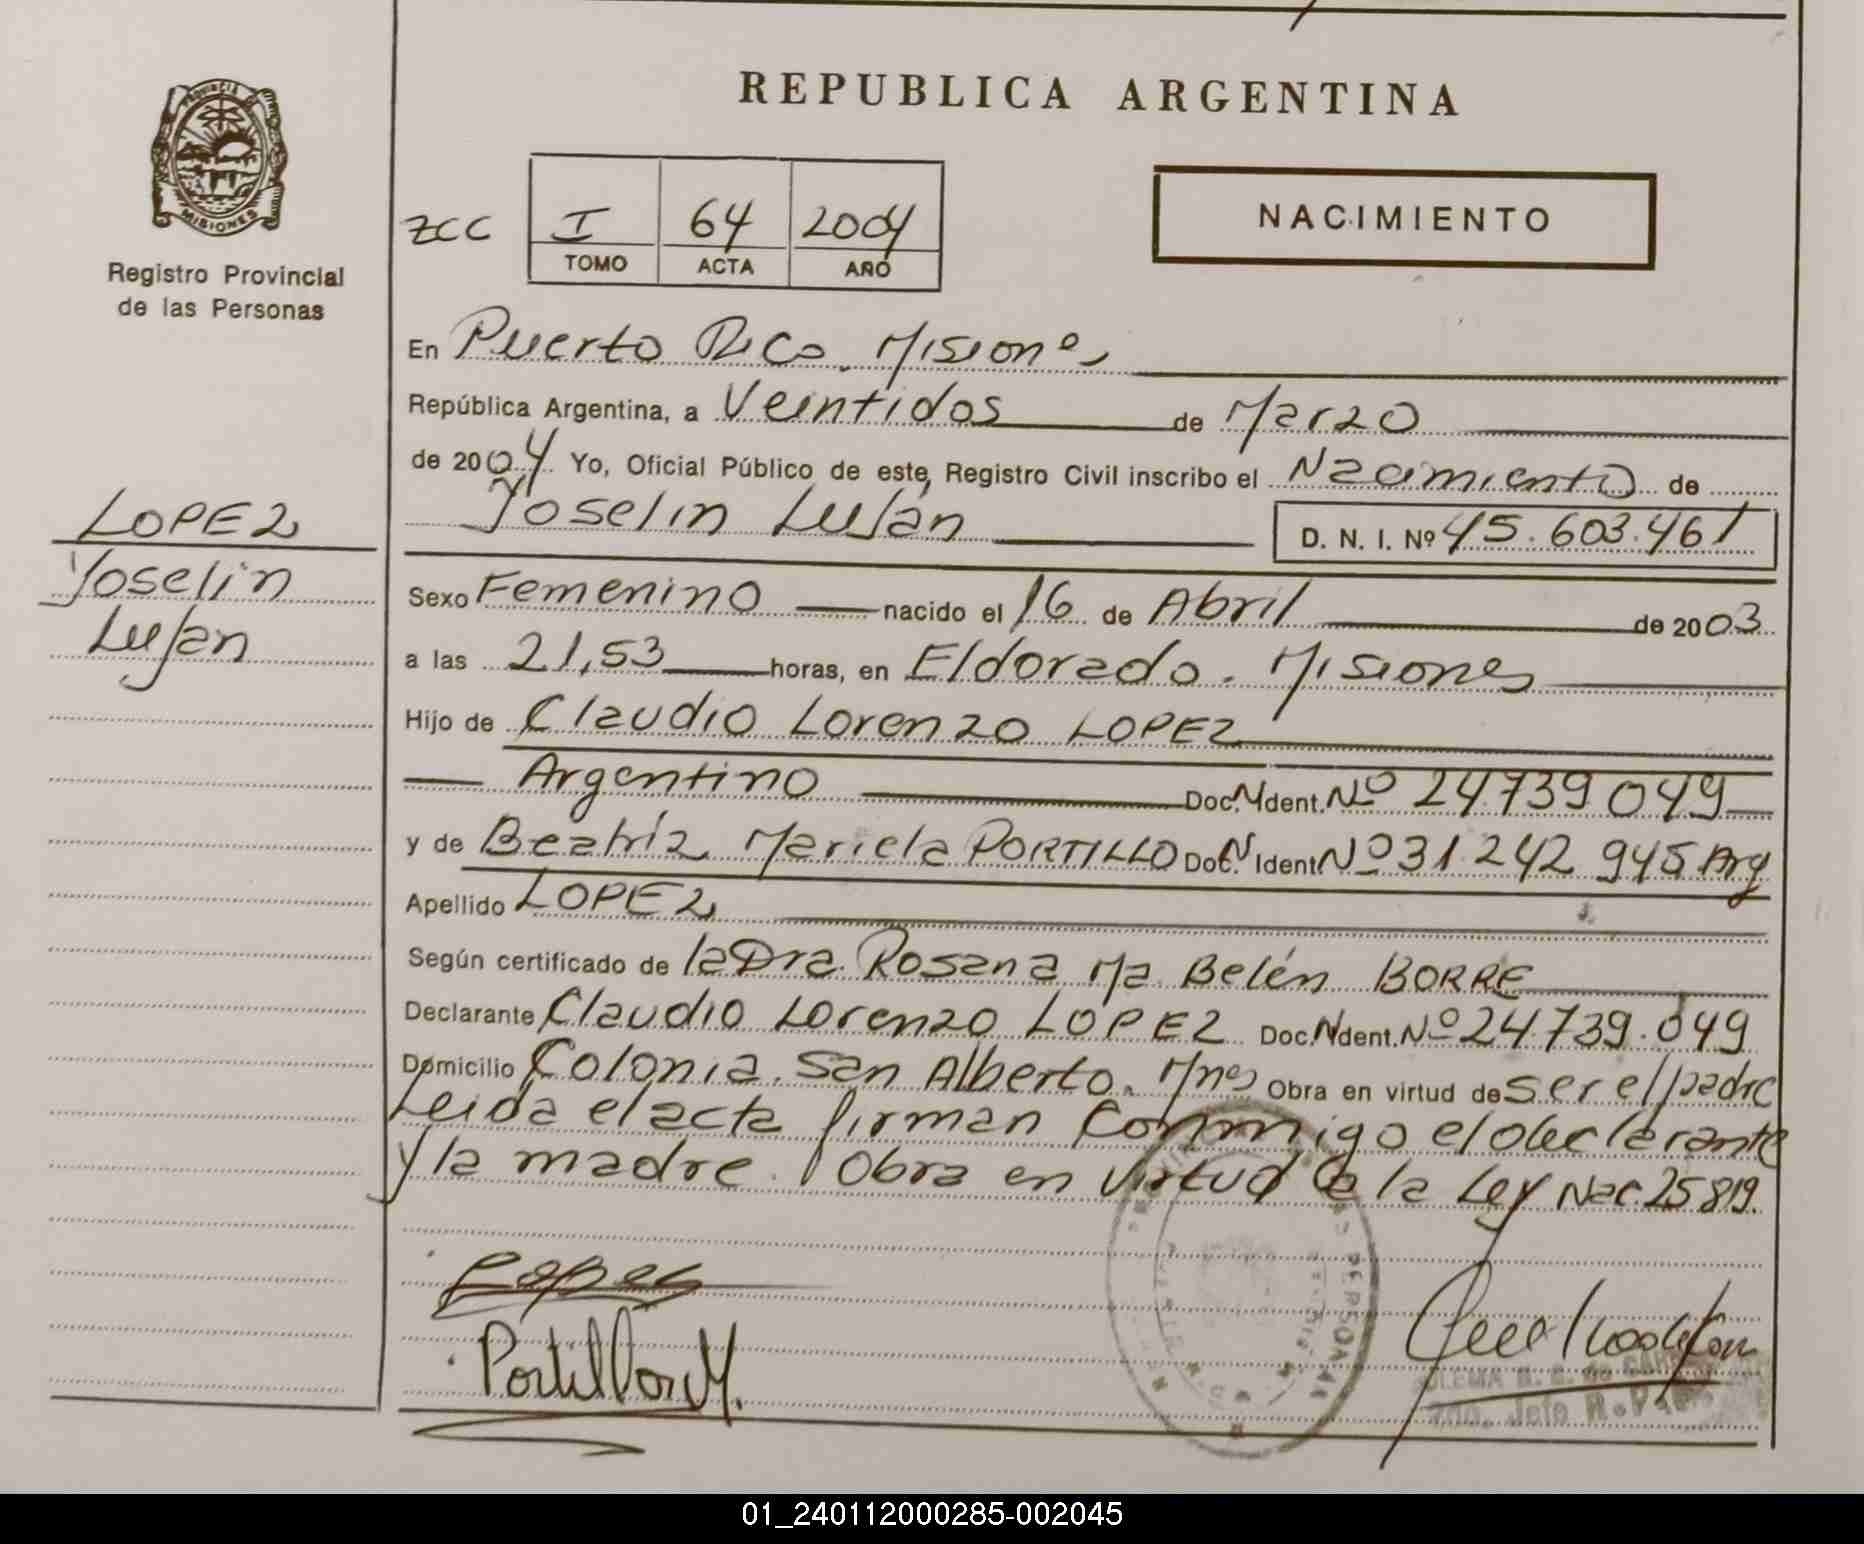 REPUBLICA ARGENTINA
PROVINCIA
MISIONES
Registro Provincial
de las Personas
ZCC
I 64 2004
TOMO ACTA AÑO
NACIMIENTO
En Puerto Rico. Misiones
República Argentina, a Veintidos de Marzo
de 2004 Yo, Oficial Público de este, Registro Civil inscribo el Nacimiento de
Yoselin Luján
D. N. I. Nº 45.603.461
LOPEZ
Yoselin
Luján
Sexo Femenino nacido el 16 de Abril de 2003
a las 21,53 horas, en Eldorado. Misiones
Hijo de Claudio Lorenzo LOPEZ
Argentino Doc. N Ident. Nº 24.739.049
y de Beatríz Mariela PORTILLO Doc. N Ident. Nº 31.242.945 Arg
Apellido LOPEZ
Según certificado de la Dra. Rosana Ma. Belén BORRE
Declarante Claudio Lorenzo LOPEZ Doc. N Ident. Nº 24.739.049
Domicilio Colonia. San Alberto. Mnes Obra en virtud de ser el padre
Leida el acta firman conmigo el declarante
y la madre. Obra en virtud de la Ley Nac. 25819.
Lopes
Portillo M.
PERSONAS
Jefe R.P.
01_240112000285-002045